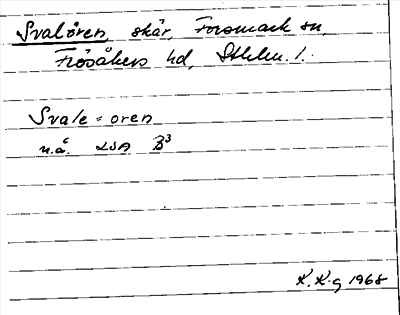 Svalören, skär, Forsmark sn,
Frösåkers hd, Sthlm. l.
Svale = oren
n.å. LSA B³
K. K-g 1968